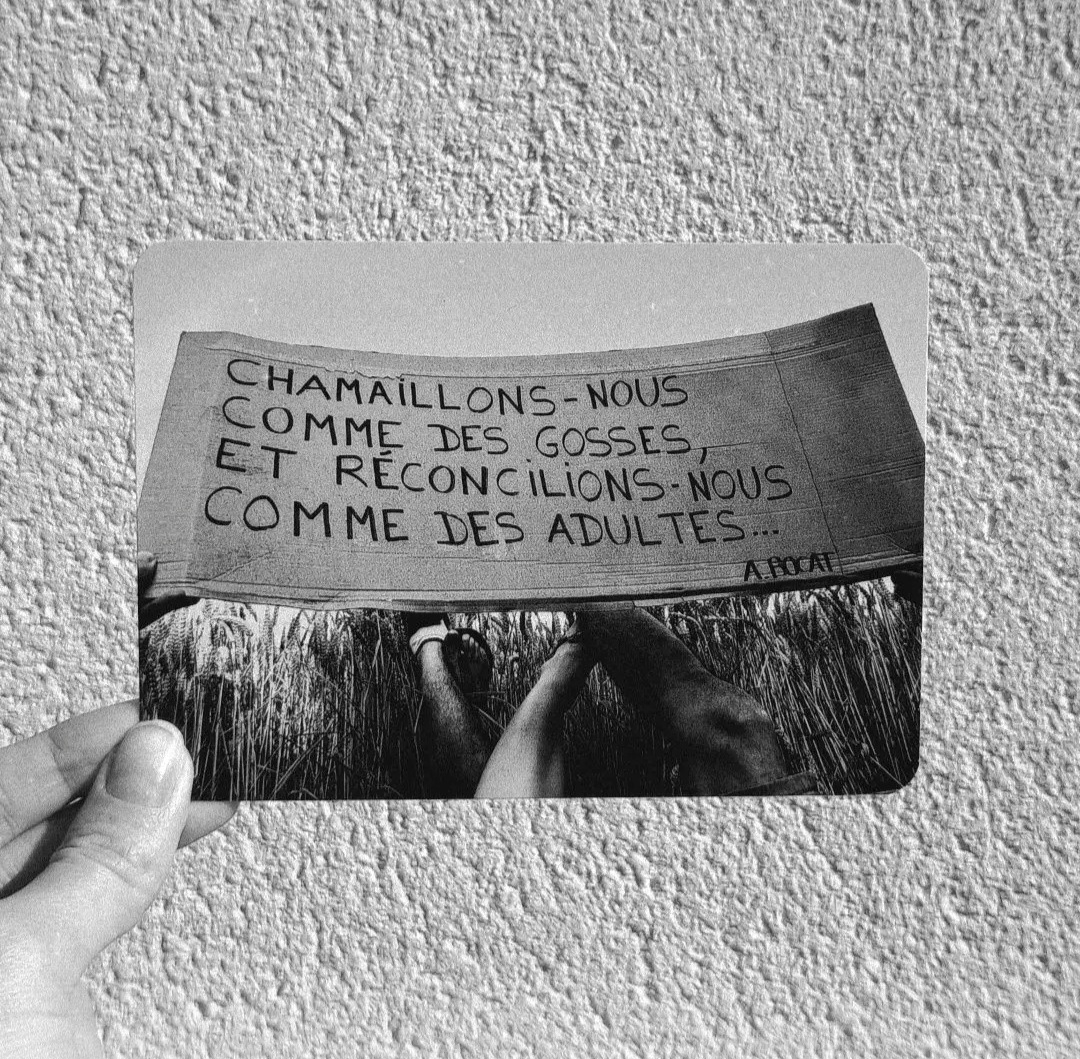 CHAMAILLONS-NOUS
COMME DES GOSSES,
ET RÉCONCILIONS-NOUS
COMME DES ADULTES...
A.BOCAT